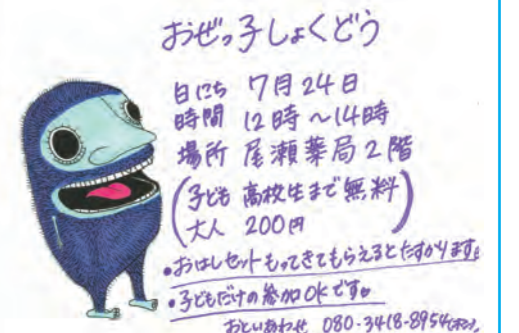 おぜっ子しょくどう
日にち 7月24日
時間 12時～14時
場所 尾瀬薬局2階
(子ども 高校生まで無料
大人 200円)
•おはしセットもってきてもらえるとたすかります。
•子どもだけの参加OKです。
おといあわせ 080-3418-8954